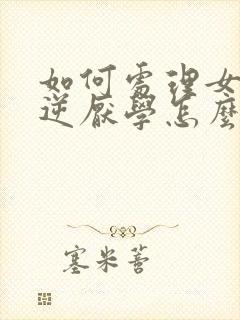 如何處理女
逆厭學怎麼
塞米蓍